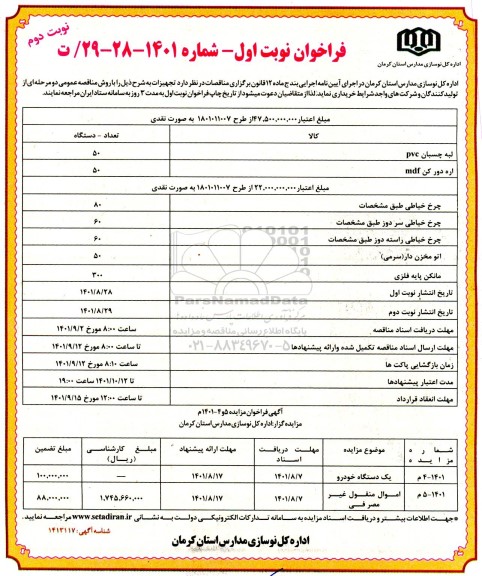 نوبت دوم
فراخوان نوبت اول- شماره ۱۴۰۱-۲۸-۲۹/ ت
اداره کل نوسازی مدارس استان کرمان
اداره کل نوسازی مدارس استان کرمان در اجرای آیین نامه اجرایی بند ج ماده ۱۲ قانون برگزاری مناقصات در نظر دارد تجهیزات به شرح ذیل را با روش مناقصه عمومی دو مرحله ای از
تولیدکنندگان و شرکت های واجد شرایط خریداری نماید. لذا از متقاضیان دعوت میشود از تاریخ چاپ فراخوان نوبت اول به مدت ۳ روز به سامانه ستاد ایران مراجعه نمایند.
مبلغ اعتبار ۴۷,۵۰۰,۰۰۰,۰۰۰از طرح ۱۸۰۱۰۱۱۰۰۷ به صورت نقدی
کالا تعداد - دستگاه
لبه چسبان pvc ۵۰
اره دور کن mdf ۵۰
مبلغ اعتبار ۲۲,۰۰۰,۰۰۰,۰۰۰ از طرح ۱۸۰۱۰۱۱۰۰۷ به صورت نقدی
چرخ خیاطی طبق مشخصات ۸۰
چرخ خیاطی سر دوز طبق مشخصات ۶۰
چرخ خیاطی راسته دوز طبق مشخصات ۶۰
اتو مخزن دار(سرمی) ۵۰
مانکن پایه فلزی ۳۰۰
تاریخ انتشار نوبت اول ۱۴۰۱/۸/۲۸
تاریخ انتشار نوبت دوم ۱۴۰۱/۸/۲۹
مهلت دریافت اسناد مناقصه ساعت ۸:۰۰ مورخ ۱۴۰۱/۹/۲
مهلت ارسال اسناد مناقصه تکمیل شده وارائه پیشنهادها تا ساعت ۸:۰۰ مورخ ۱۴۰۱/۹/۱۲
زمان بازگشایی پاکت ها ساعت ۸:۱۰ مورخ ۱۴۰۱/۹/۱۲
مدت اعتبار پیشنهادها تا ۱۴۰۱/۱۰/۱۲ ساعت ۱۹:۰۰
مهلت انعقاد قرارداد تا ساعت ۱۲:۰۰ مورخ ۱۴۰۱/۹/۱۵
ParsNamadData
پایگاه اطلاع رسانی مناقصه و مزایده
۰۲۱-۸۸۳۴۹۶۷۰-۵
آگهی فراخوان مزایده ۵و۴-۱۴۰۱م
مزایده گزار: اداره کل نوسازی مدارس استان کرمان
شماره مزایده موضوع مزایده مهلت دریافت اسناد مهلت ارائه پیشنهاد مبلغ کارشناسی (ریال) مبلغ تضمین
۴-۱۴۰۱ م یک دستگاه خودرو ۱۴۰۱/۸/۷ ۱۴۰۱/۸/۱۷ — ۱۰۰,۰۰۰,۰۰۰
۵-۱۴۰۱ م اموال منقول غیر مصرفی ۱۴۰۱/۸/۷ ۱۴۰۱/۸/۱۷ ۱,۷۴۵,۶۶۰,۰۰۰ ۸۸,۰۰۰,۰۰۰
*جهت اطلاعات بیشتر و دریافت اسناد مزایده به سامانه تدارکات الکترونیکی دولت به نشانی www.setadiran.ir مراجعه نمایید.
شناسه آگهی: ۱۴۱۳۱۱۷
اداره کل نوسازی مدارس استان کرمان